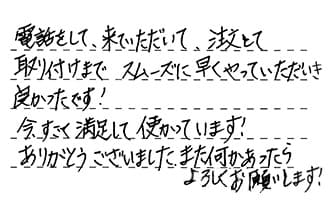 電話をして、来ていただいて、注文して
取り付けまで スムーズに早くやっていただき
良かったです!
今、すごく満足して使かっています!
ありがとうございました。また何かあったら
よろしくお願いします!